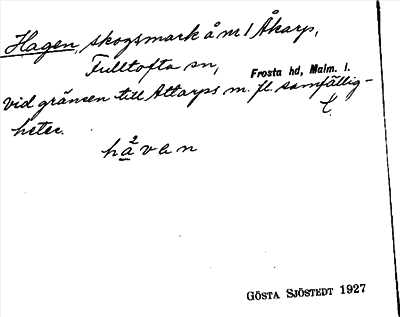 Hagen, skogsmark å nr 1 Åkarp,
Fulltofta sn, Frosta hd, Malm. l.
vid gränsen till Attarps m. fl. samfällig-
heter.
hàvan
GÖSTA SJÖSTEDT 1927